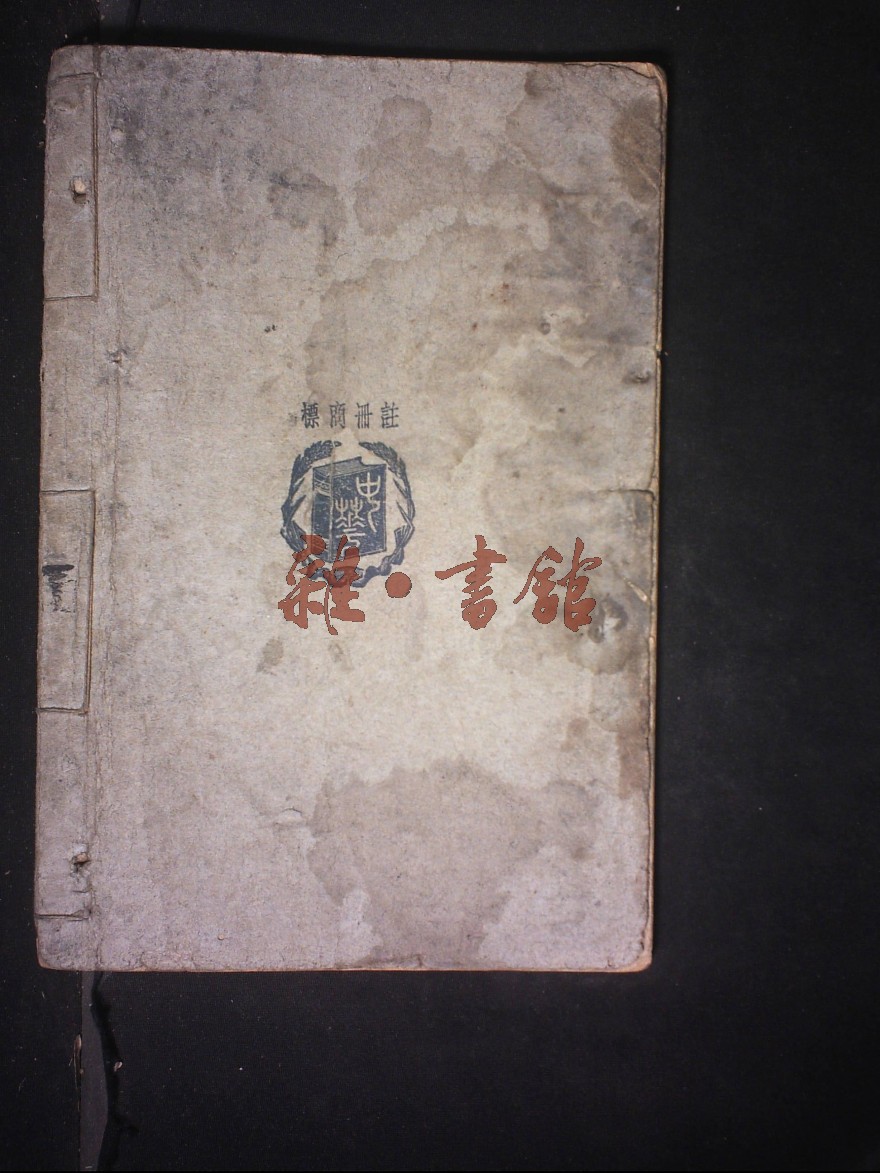 註冊商標
中華
雜·書館